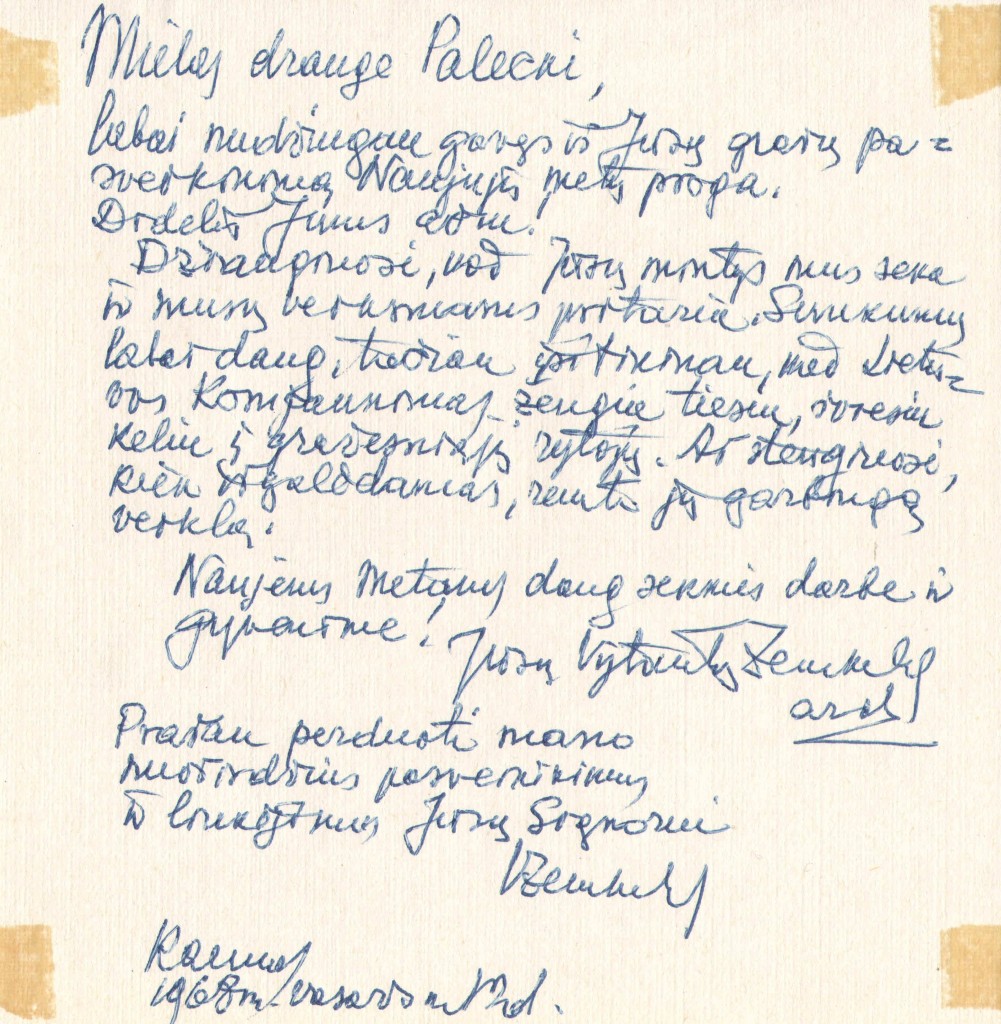 Mielas drauge Paleckі,
labai nudžiugau gavęs iš Jūsų gražių pa=
sveikinimą Naujųjų metų proga.
Didelis Jums ačiū.
Džiaugiuosi, kad Jūsų mintys mus seka
ir mūsų veiksmams pritaria. Sunkumų
labai daug, tačiau įsitikinau, kad Lietu=
vos žengia tiesiu, šviesiu
keliu į gražesnįjį rytojų. Aš stengiuosi,
kiek išgalėdamas, remti jų garbingą
veiklą.
Naujems Metams daug sėkmės darbe ir
gyvenime!
Jūsų Vytautas Žemkalnis
arch
Prašau perduoti mano
nuoširdžius pasveikinimus
ir linkėjimus Jūsų
VŽemkalnis
Kaunas
1968 m. vasario m. d.